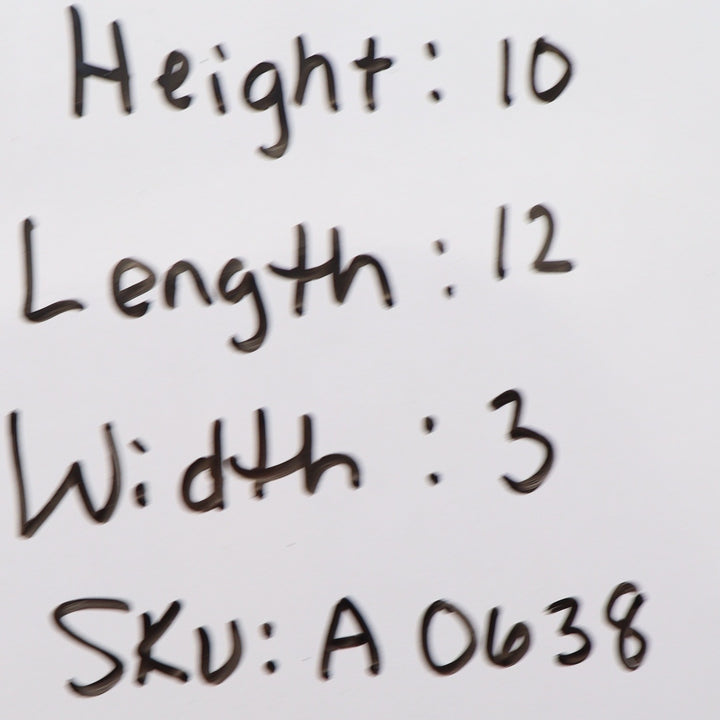 Height: 10
Length: 12
Width: 3
SKU: A 0638